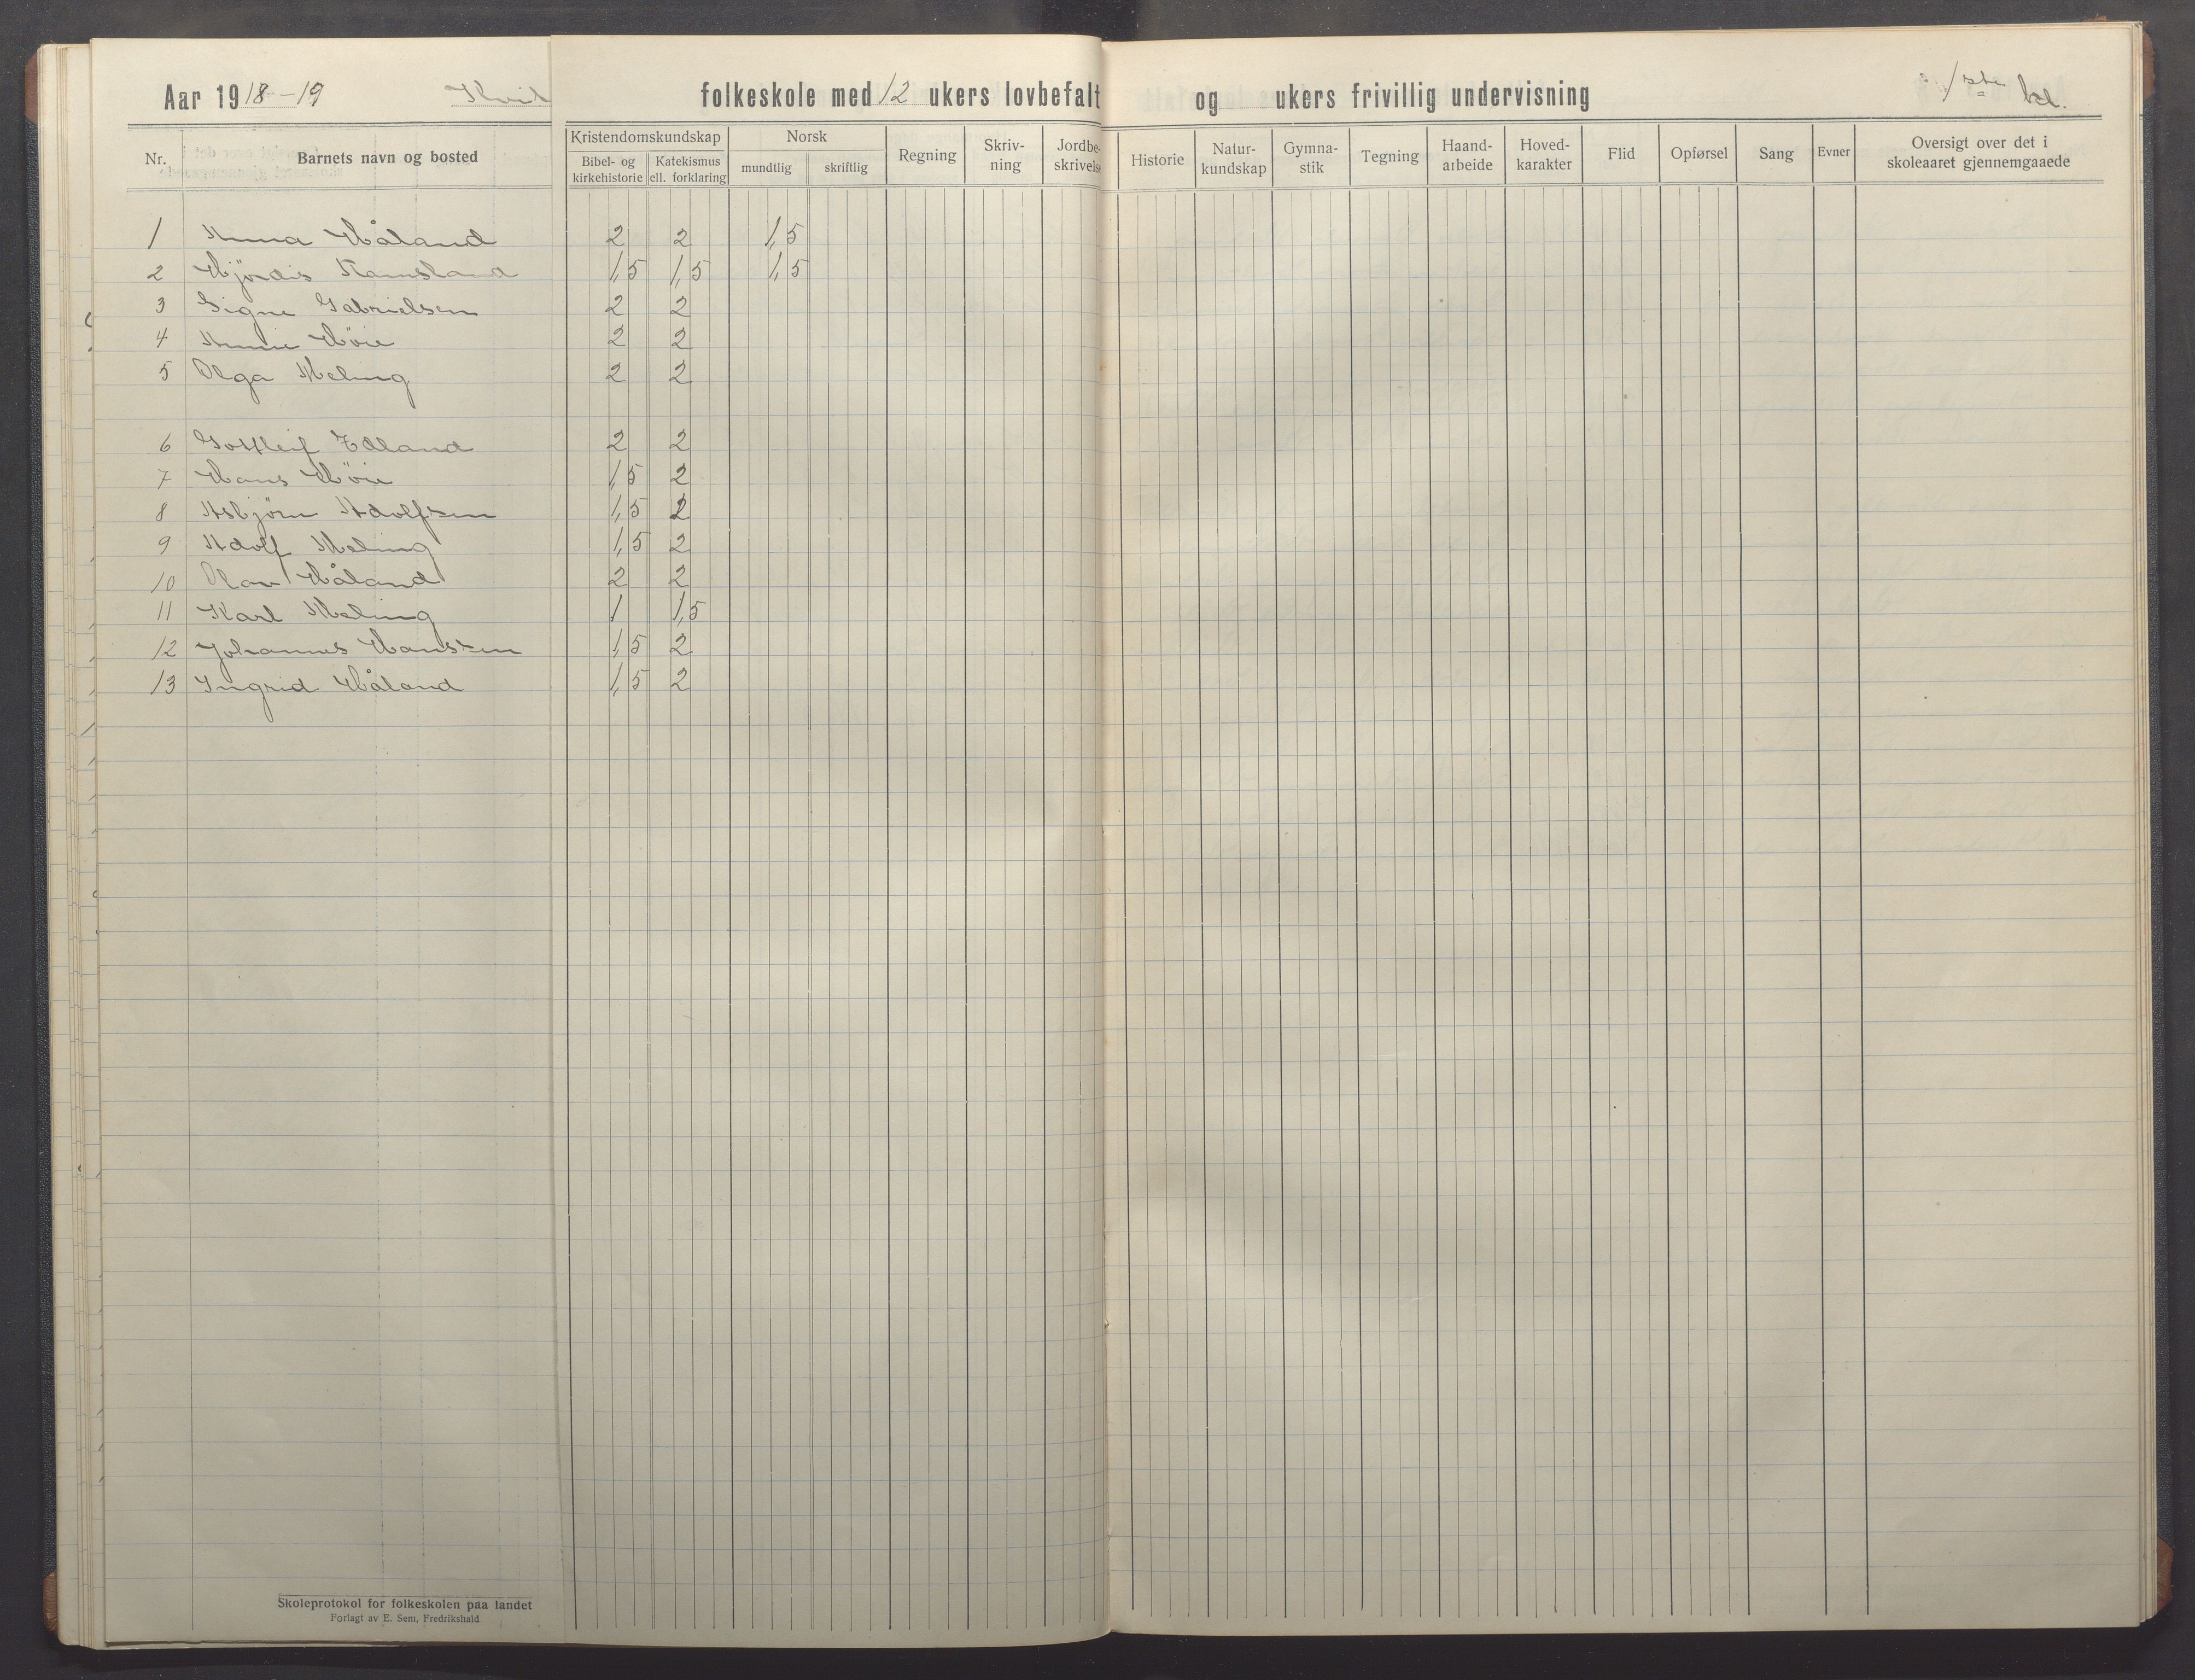 Aar 1918-19 Kvit folkeskole med 12 ukers lovbefalt og ukers frivillig undervisning 1ste kl.
Nr. Barnets navn og bosted Kristendomskundskap Bibel- og kirkehistorie Katekismus ell. forklaring Norsk mundtlig skriftlig Regning Skriv-ning Jordbe-skrivelse Historie Natur-kundskap Gymna-stik Tegning Haand-arbeide Hoved-karakter Flid Opførsel Sang Evner Oversigt over det i skoleaaret gjennemgaaede
1 Anna Håland 2 2 1,5
2 Hjördis Ramsland 1,5 1,5 1,5
3 Signe Gabrielsen 2 2
4 Annie Höie 2 2
5 Olga Meling 2 2
6 Gottleif Edland 2 2
7 Hans Höie 1,5 2
8 Asbjörn Adolfsen 1,5 2
9 Adolf Meling 1,5 2
10 Olav Håland 2 2
11 Karl Meling 1 1,5
12 Johannes Hansen 1,5 2
13 Ingrid Håland 1,5 2
Skoleprotokol for folkeskolen paa landet
Forlagt av E. Sem, Fredrikshald